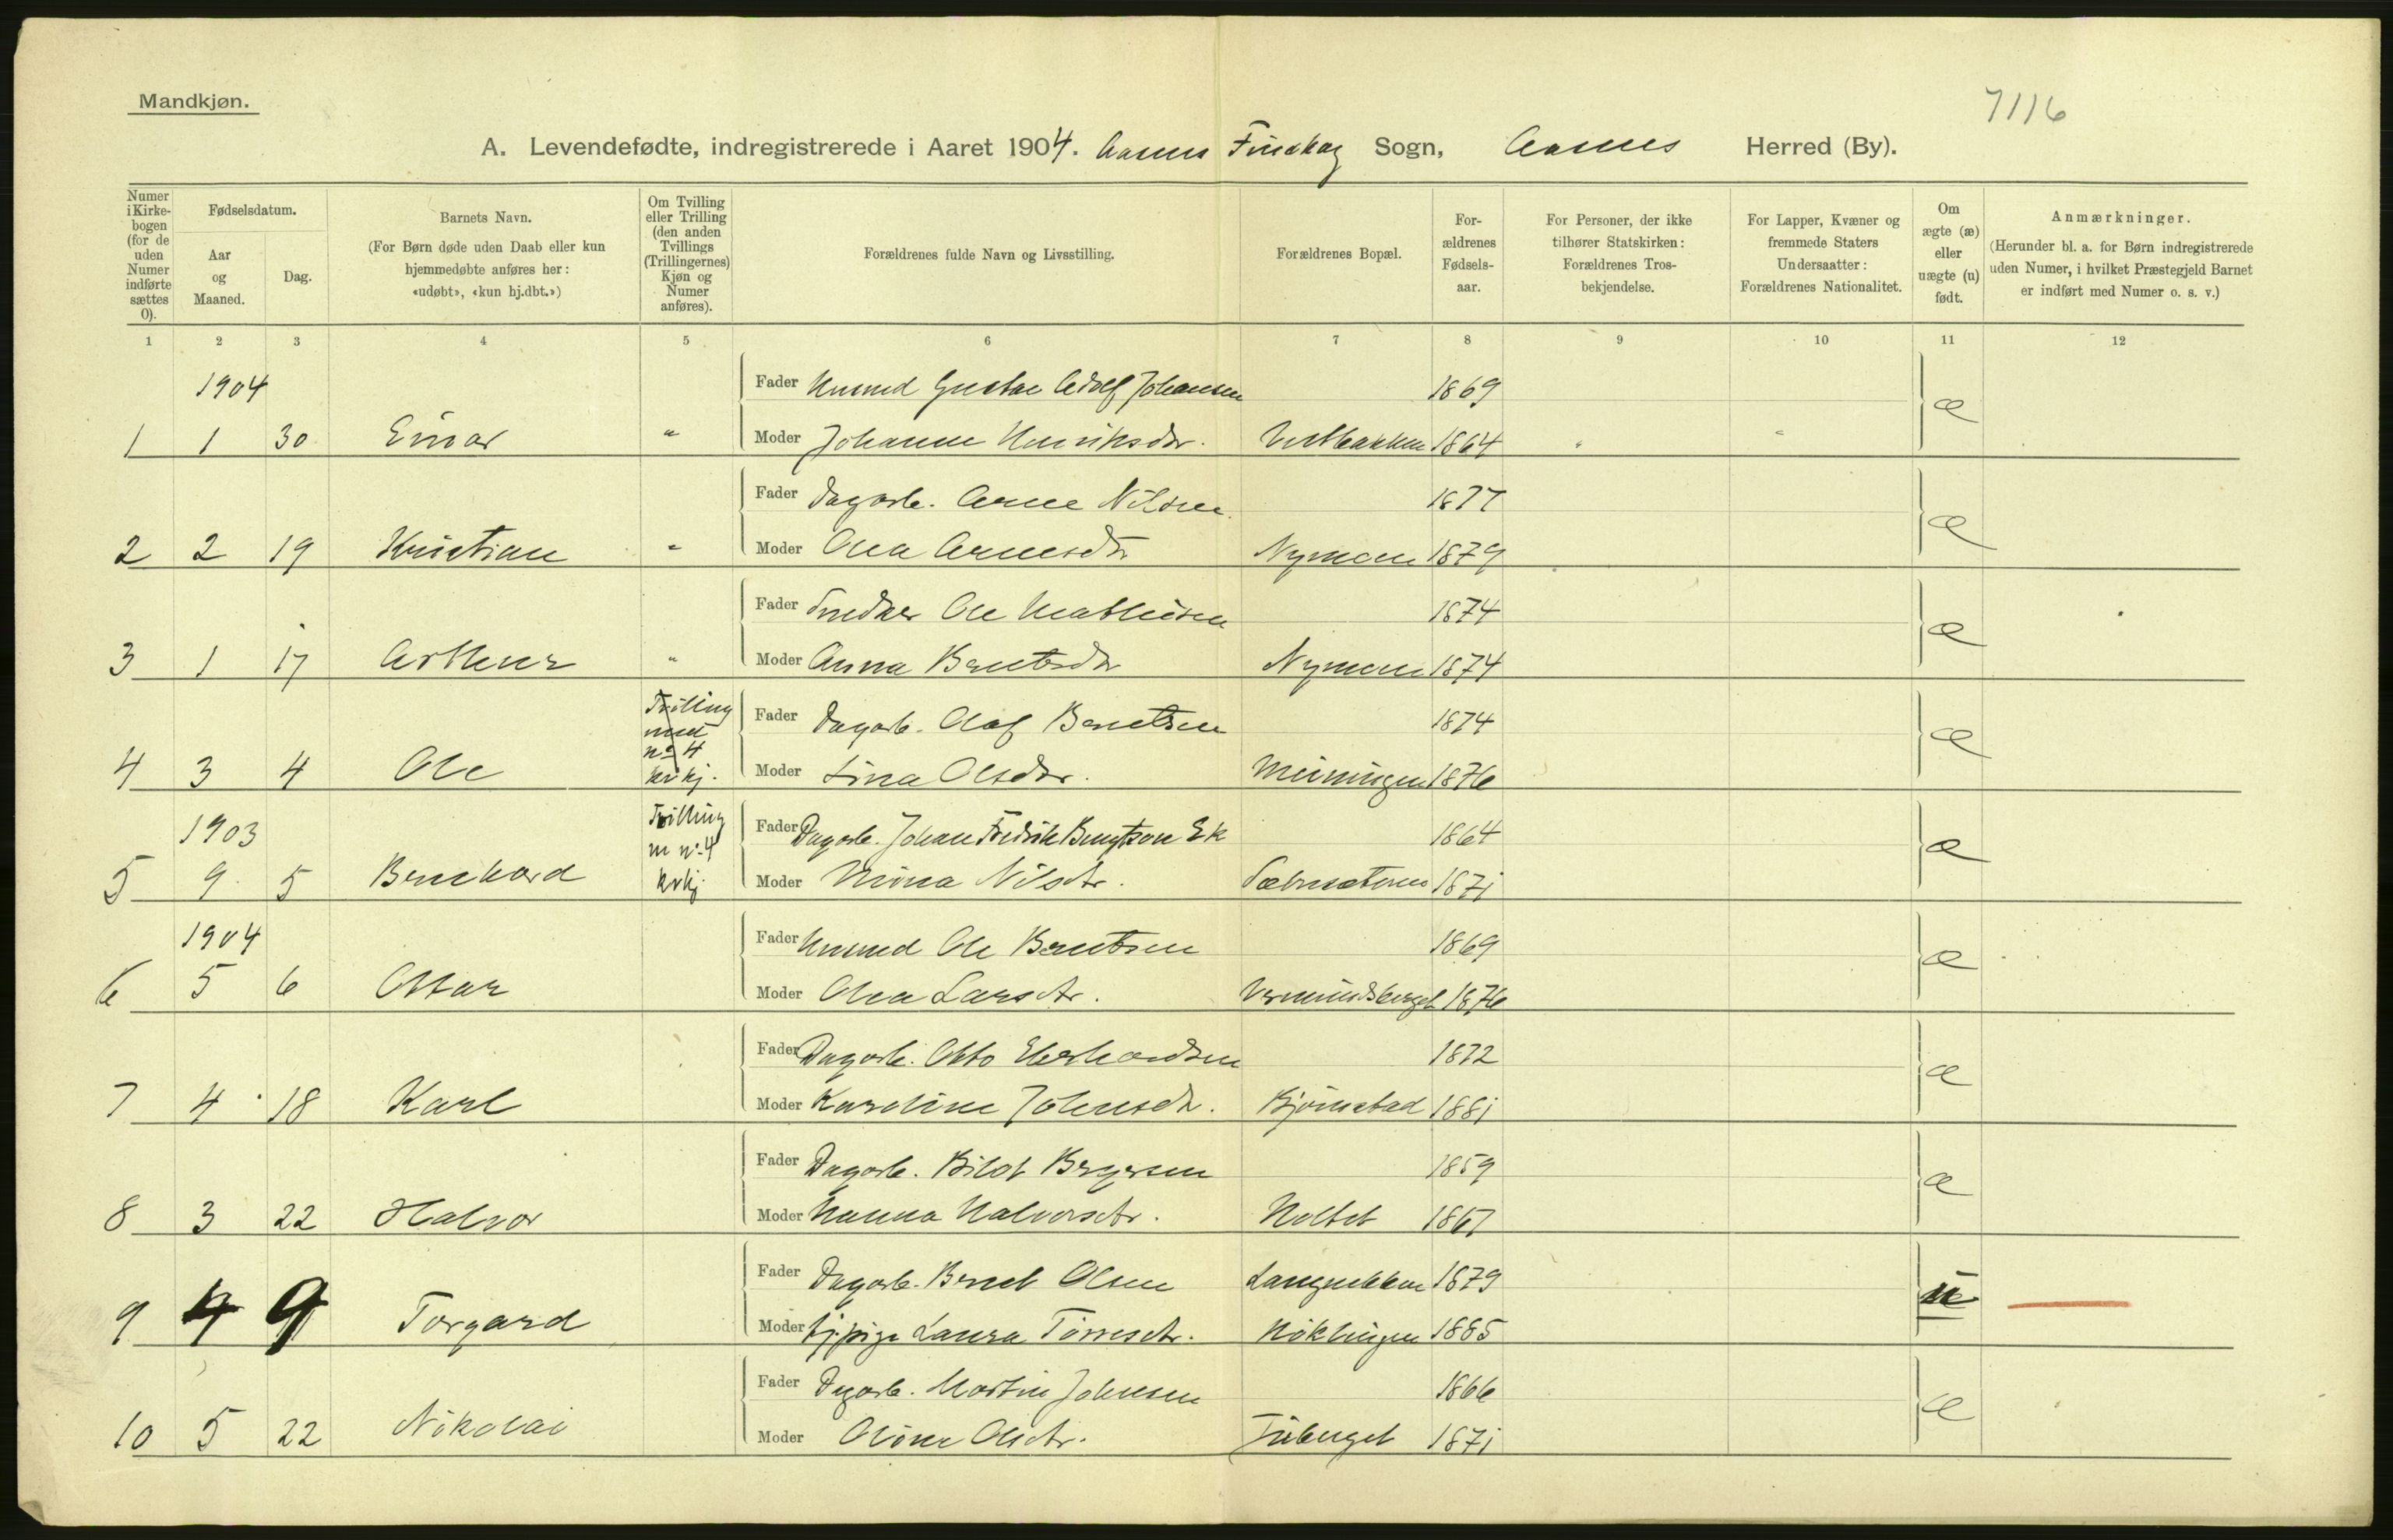 Mandkjøn.
7116
A. Levendefødte, indregistrerede i Aaret 1904. Aasnes Finskog Sogn, Aasnes Herred (By).
Numer i Kirkebogen (for de uden Numer indførte sættes 0).
Fødselsdatum.
Aar og Maaned.
Dag.
Barnets Navn.
(For Børn døde uden Daab eller kun hjemmedøbte anføres her: «udøbt», «kun hj.dbt.»)
Om Tvilling eller Trilling (den anden Tvillings (Trillingernes) Kjøn og Numer anføres).
Forældrenes fulde Navn og Livsstilling.
Forældrenes Bopæl.
For-ældrenes Fødsels-aar.
For Personer, der ikke tilhører Statskirken: Forældrenes Tros-bekjendelse.
For Lapper, Kvæner og fremmede Staters Undersaatter: Forældrenes Nationalitet.
Om ægte (æ) eller uægte (u) født.
Anmærkninger.
(Herunder bl. a. for Børn indregistrerede uden Numer, i hvilket Præstegjeld Barnet er indført med Numer o. s. v.)
1 2 3 4 5 6 7 8 9 10 11 12
1904 Fader Husmd Gustav Adolf Johansen 1869 æ
1 1 30 Einar " Moder Johanne Henriksdr. Vestbakken 1864 " "
Fader Dagarb. Arne Nilsen 1877 æ
2 2 19 Kristian " Moder Olea Arnesdtr Nymoen 1879
Fader Snedker Ole Mathisen 1874 æ
3 1 17 Arthur " Moder Anna Berntsdr Nymoen 1874
Trilling med no 4 kvkj. Fader Dagarb. Olaf Berntsen 1874 æ
4 3 4 Ole Moder Lina Olsdr. 1876
1903 Tvilling m no 4 kvkj. Fader Dagarb. Johan Fredrik Bengtson Ek 1864 æ
5 9 5 Bernhard Moder Mina Nilsdtr. 1871
1904 Fader Husmd Ole Berntsen 1869 æ
6 5 6 Ottar Moder Olea Larsdtr. Vermundsberget 1876
Fader Dagarb. Otto Eberhardsen 1872 æ
7 4 18 Karl Moder Karoline Johnsdr. Bjørnstad 1881
Fader Dagarb. Bilot Bergersen 1859 æ
8 3 22 Halvor Moder Hanna Halvorsdtr. Holtet 1867
Fader Dagarb. Bernt Olsen 1879 u
9 4 9 Torgard Moder tj.pige Laura Tørresdtr. 1885
Fader Dagarb. Martin Johnsen 1866 æ
10 5 22 Nikolai Moder Oline Olsdtr. 1871